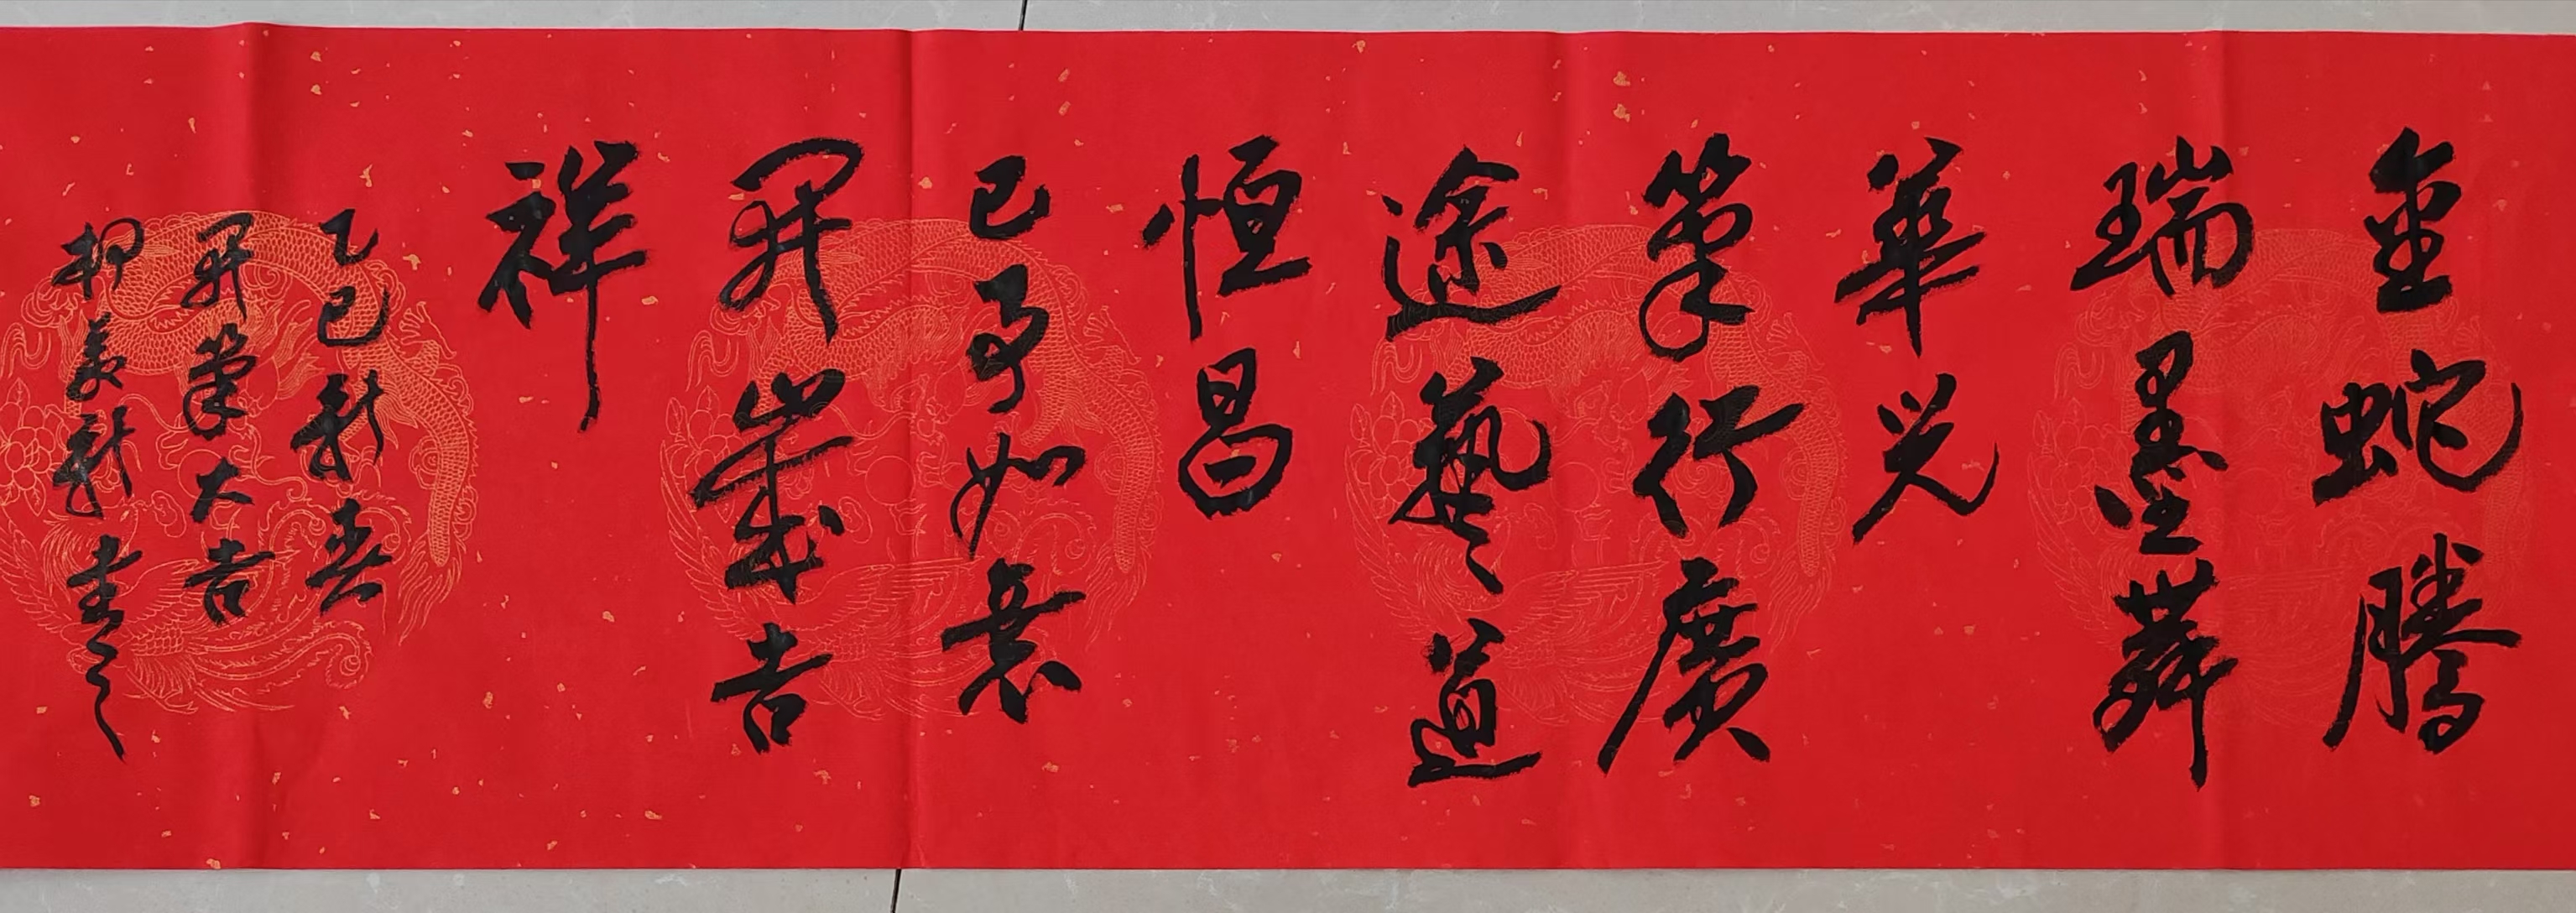 金蛇騰
瑞墨舞
華光
筆行廣
途藝道
恒昌
巳事如
開歲吉
祥
乙巳新春
開筆大吉
柳新書